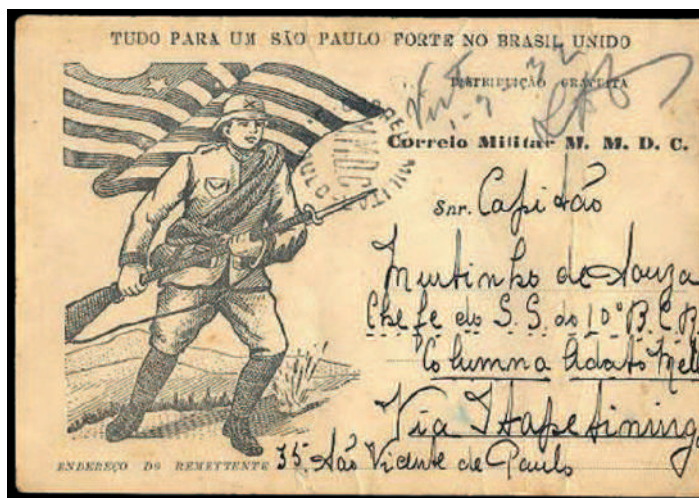 TUDO PARA UM SÃO PAULO FORTE NO BRASIL UNIDO
DISTRIBUIÇÃO GRATUITA
1-9-32
Correio Militar M. M. D. C.
CORREIO MILITAR
MMDC
Snr. Capitão
Murtinho de Souza
Chefe do S. S. do 10º B. C. R.
Columna
Via Itapetininga
ENDEREÇO DO REMETTENTE 35. São Vicente de Paulo